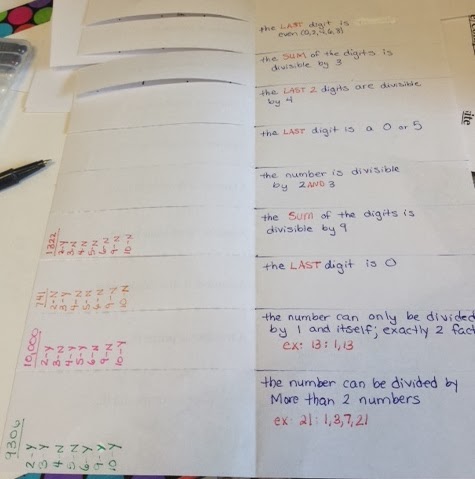 the LAST digit is
even (0,2,4,6,8)
the SUM of the digits is
divisible by 3
the LAST 2 digits are divisible
by 4
the LAST digit is a 0 or 5
the number is divisible
by 2 AND 3
the Sum of the digits is
divisible by 9
the LAST digit is 0
the number can only be divided
by 1 and itself; exactly 2 fact
ex: 13: 1,13
the number can be divided by
More than 2 numbers
ex: 21: 1,3,7,21
1322
2-Y
3-N
4-N
5-N
6-N
9-N
10-N
741
2-N
3-Y
4-N
5-N
6-N
9-N
10-N
10,000
2-Y
3-N
4-Y
5-Y
6-N
9-N
10-Y
9306
2-Y
3-Y
4-N
5-N
6-Y
9-Y
10-Y